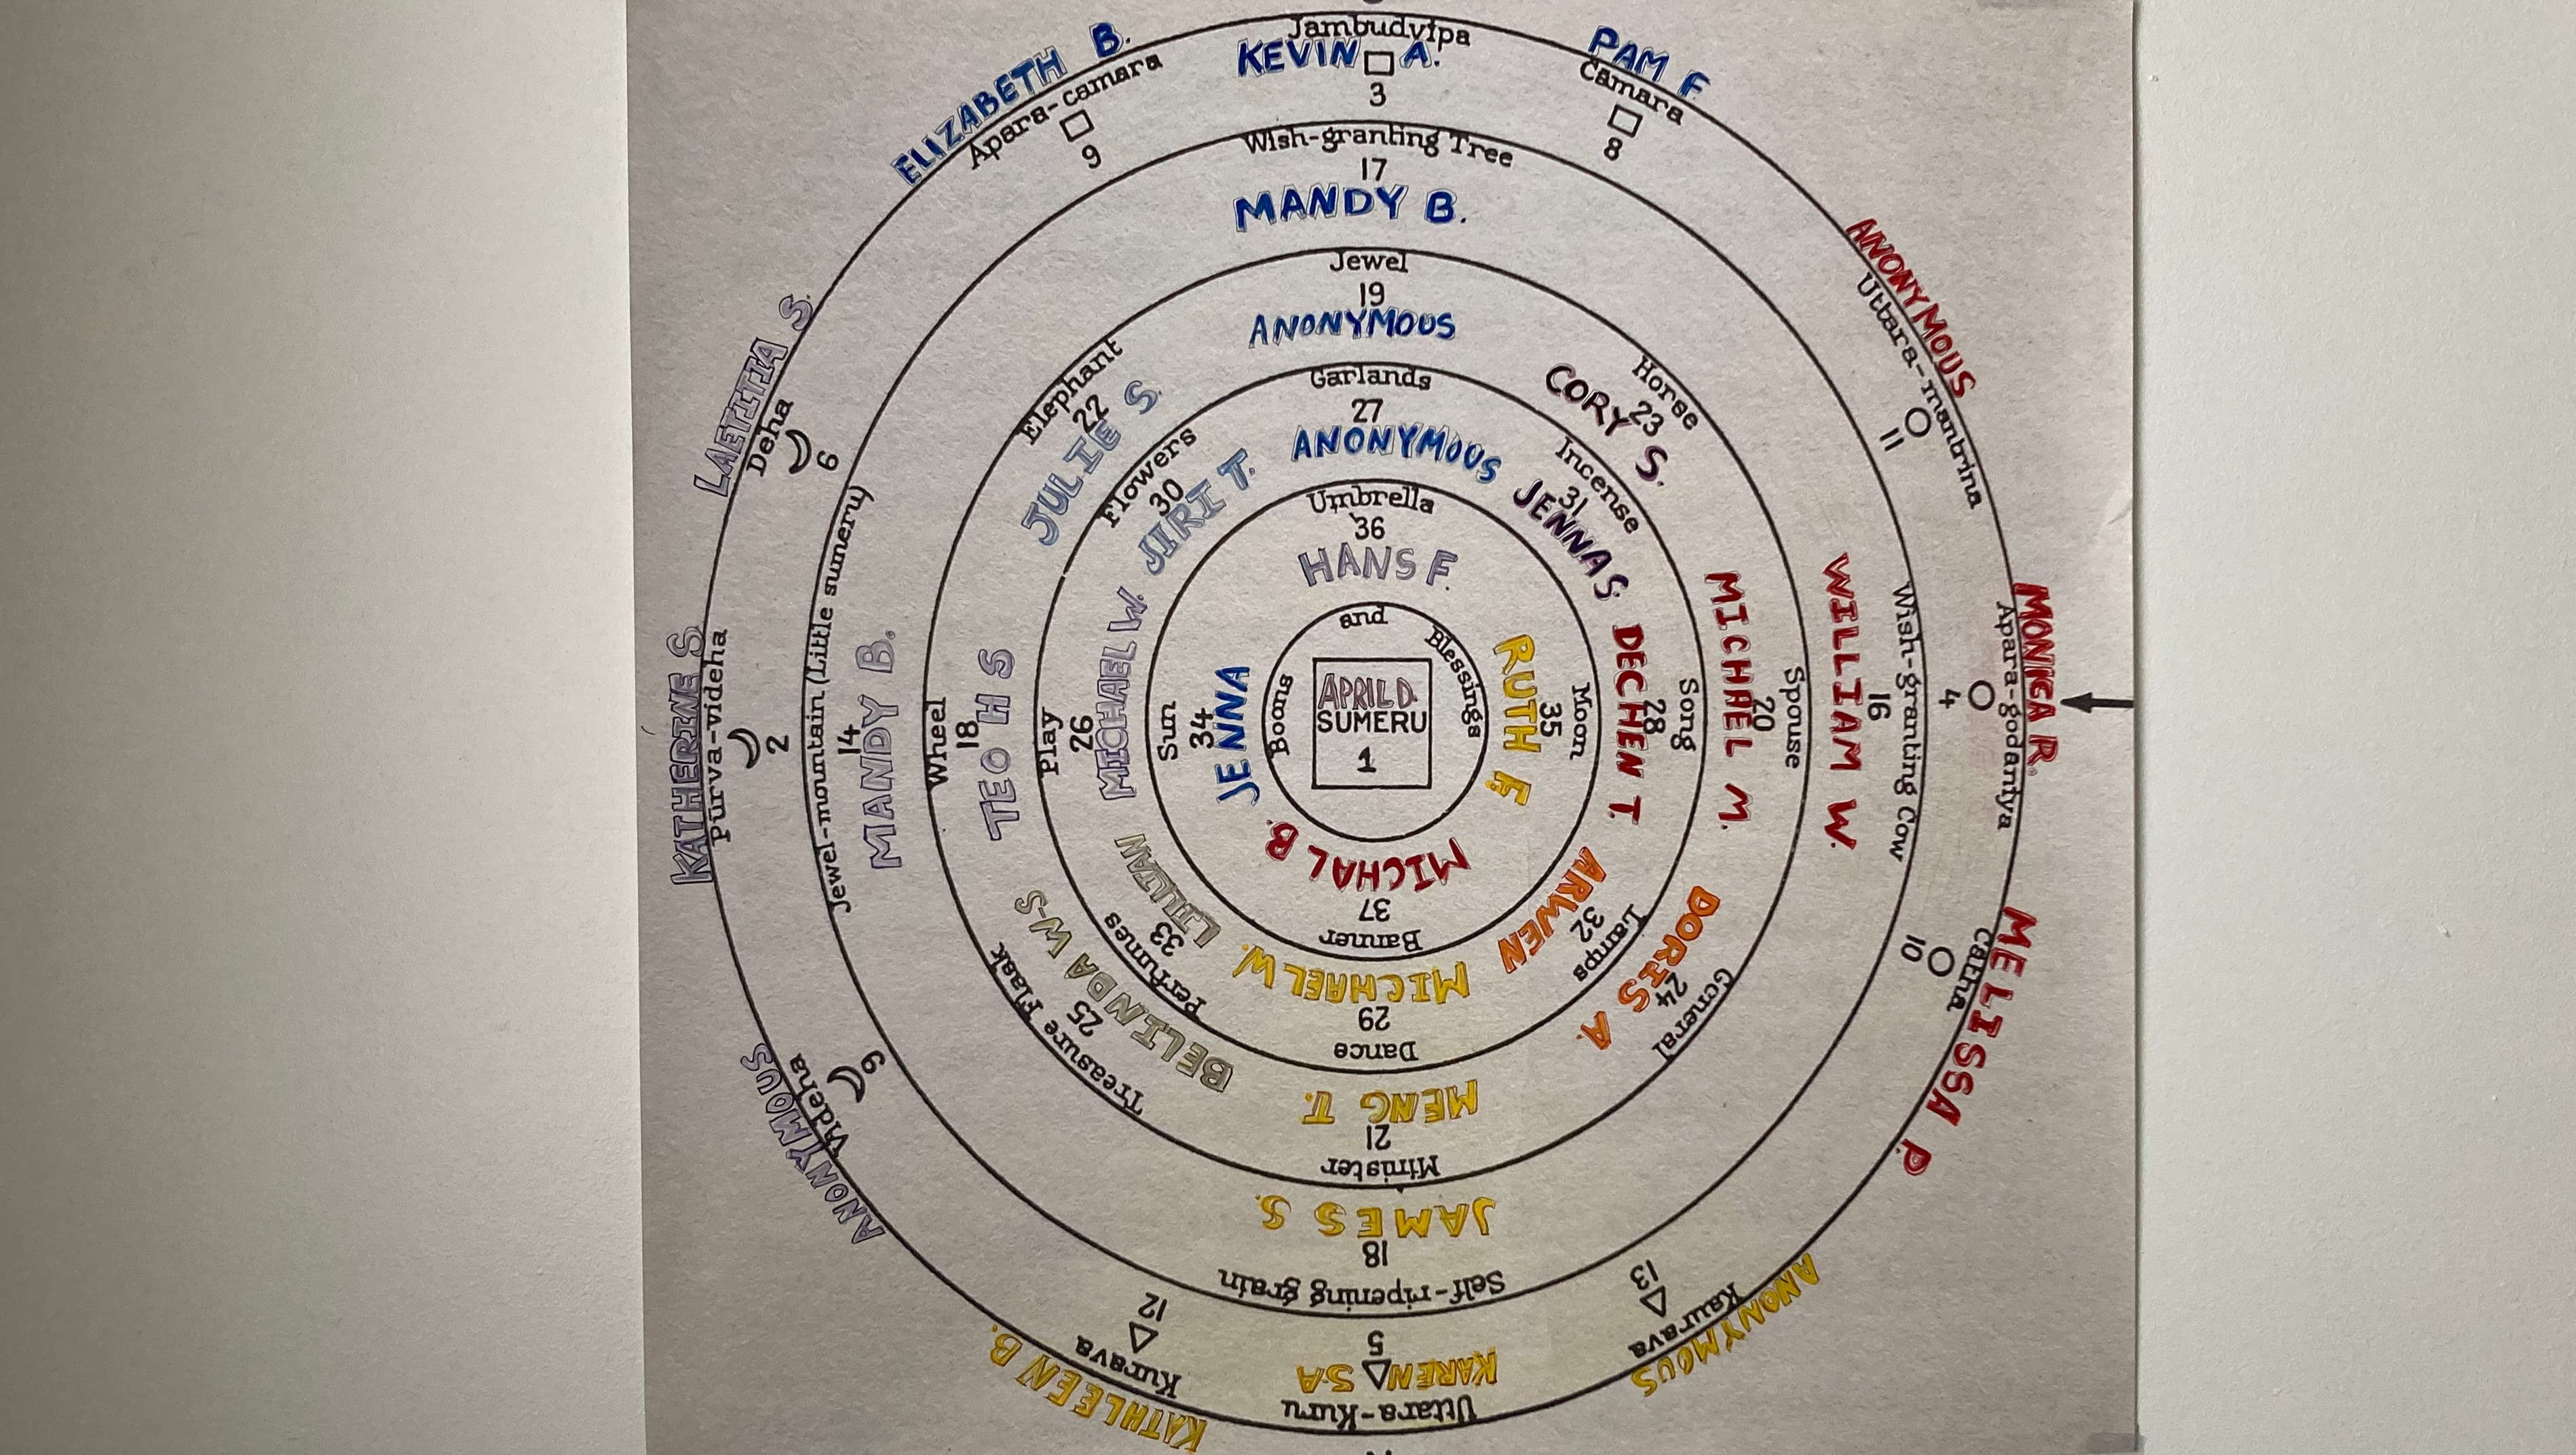 Jambudvīpa
KEVIN A.
3
PAM F
Camara
8
ELIZABETH B.
Apara-camara
9
Wish-granting Tree
17
MANDY B.
Jewel
19
ANONYMOUS
Garlands
27
ANONYMOUS
Umbrella
36
HANS F.
ANONYMOUS
Uttara-mantrina
11
Horse
23
CORY S.
Incense
31
JENNA S.
Elephant
22
JULIE S.
Flowers
30
JIRI T.
LAETITIA S.
Deha
6
KATHERINE S.
Purva-videha
2
Jewel-mountain (Little sumeru)
14
MANDY B.
Wheel
18
TEO H S
Play
26
MICHAEL W.
Sun
34
JENNA
Boons
and
Blessings
APRIL D.
SUMERU
1
RUTH F.
35
Moon
DECHEN T.
28
Song
MICHAEL M.
20
Spouse
WILLIAM W.
16
Wish-granting Cow
4
Apara-godanīya
MONICA R.
MICHAL B.
37
Banner
MICHAEL W.
29
Dance
MENG T.
21
Minister
JAMES S.
18
Self-ripening grain
5
KAREN SA
Uttara-Kuru
ARWEN
32
Lamps
DORIS A.
24
General
10
Catha
MELISSA P.
LILLIAN
33
Perfumes
BELINDA W-S
25
Treasure Flask
9
Videha
ANONYMOUS
12
Kurava
KATHLEEN B.
13
Kaurava
ANONYMOUS